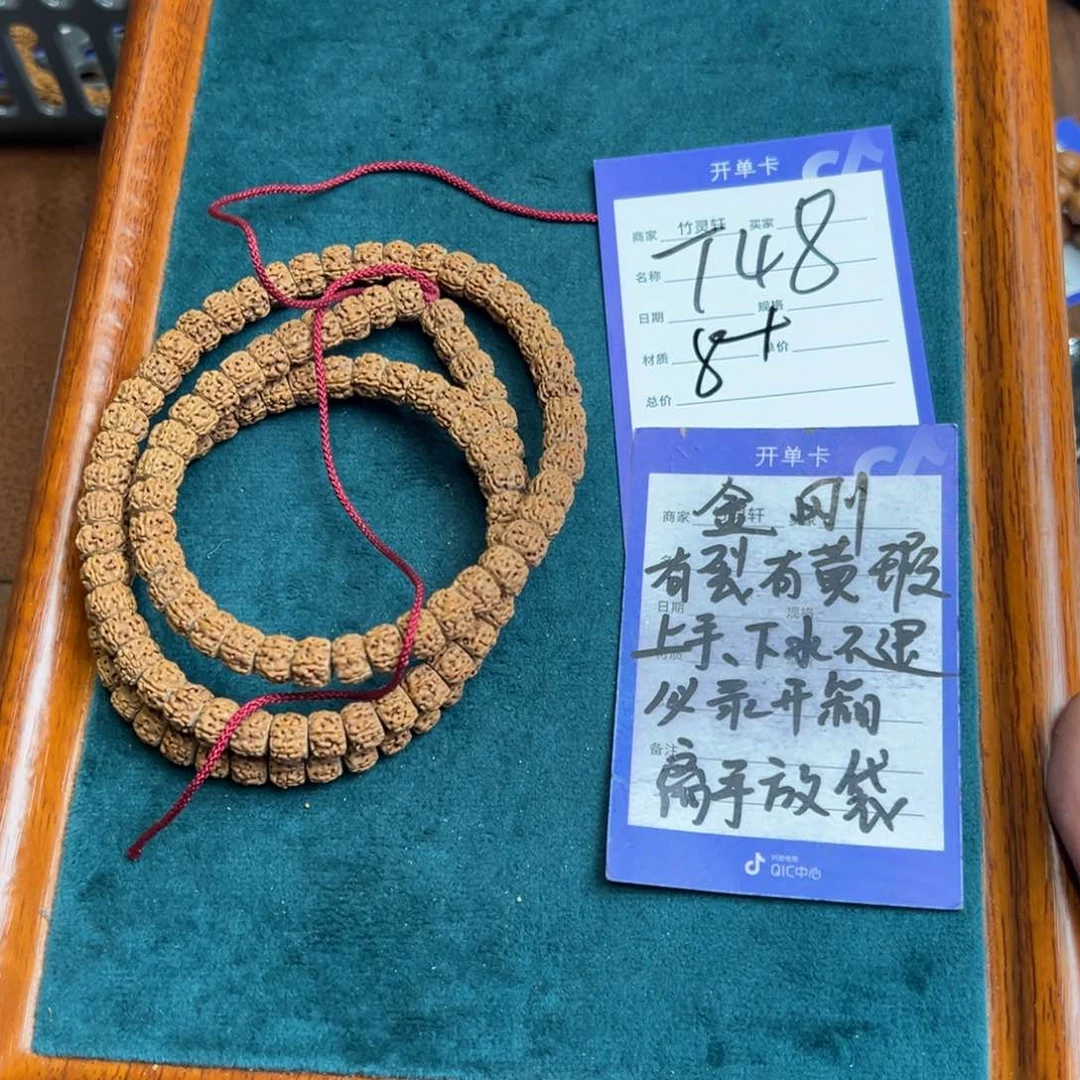 开单卡
商家 竹灵轩 买家
748
名称
日期 规格
8+
材质 单价
总价
开单卡
金刚
商家 轩
有裂有黄瑕
日期 规格
上手、下水不退
必录开箱
备注
离手放袋
抖音电商
QIC中心